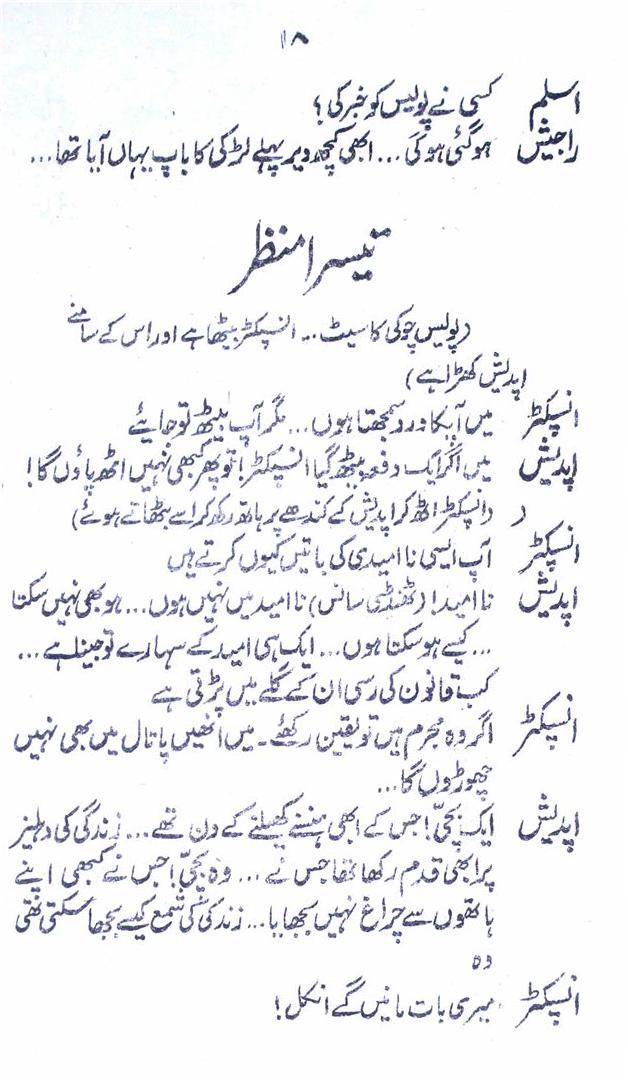 ۱۸
اسلم کسی نے پولیس کو خبر کی؟
راجیش ہو گئی ہوگی... ابھی کچھ دیر پہلے لڑکی کا باپ یہاں آیا تھا...
تیسرا منظر
(پولیس چوکی کا سیٹ... انسپکٹر بیٹھا ہے اور اس کے سامنے
اپدیش کھڑا ہے)
انسپکٹر میں آپکا درد سمجھتا ہوں... مگر آپ بیٹھ تو جائیے
اپدیش میں اگر ایک دفعہ بیٹھ گیا انسپکٹر! تو پھر کبھی نہیں اٹھ پاؤں گا!
( (انسپکٹر اٹھ کر اپدیش کے کندھے پر ہاتھ رکھ کر اسے بٹھاتے ہوئے)
انسپکٹر آپ ایسی ناامیدی کی باتیں کیوں کرتے ہیں
اپدیش ناامید! (ٹھنڈی سانس) ناامید میں نہیں ہوں... ہو بھی نہیں سکتا
... کیسے ہو سکتا ہوں... ایک ہی امید کے سہارے تو جینا ہے...
کب قانون کی رسی ان کے گلے میں پڑتی ہے
انسپکٹر اگر وہ مجرم ہیں تو یقین رکھئے۔ میں انھیں پاتال میں بھی نہیں
چھوڑوں گا...
اپدیش ایک بچی! جس کے ابھی ہنسنے کھیلنے کے دن تھے... زندگی کی دہلیز
پر ابھی قدم رکھا تھا جس نے... وہ بچی! جس نے کبھی اپنے
ہاتھوں سے چراغ نہیں بجھایا... زندگی کی شمع کیسے بجھا سکتی تھی
وہ
انسپکٹر میری بات مانیں گے انکل!